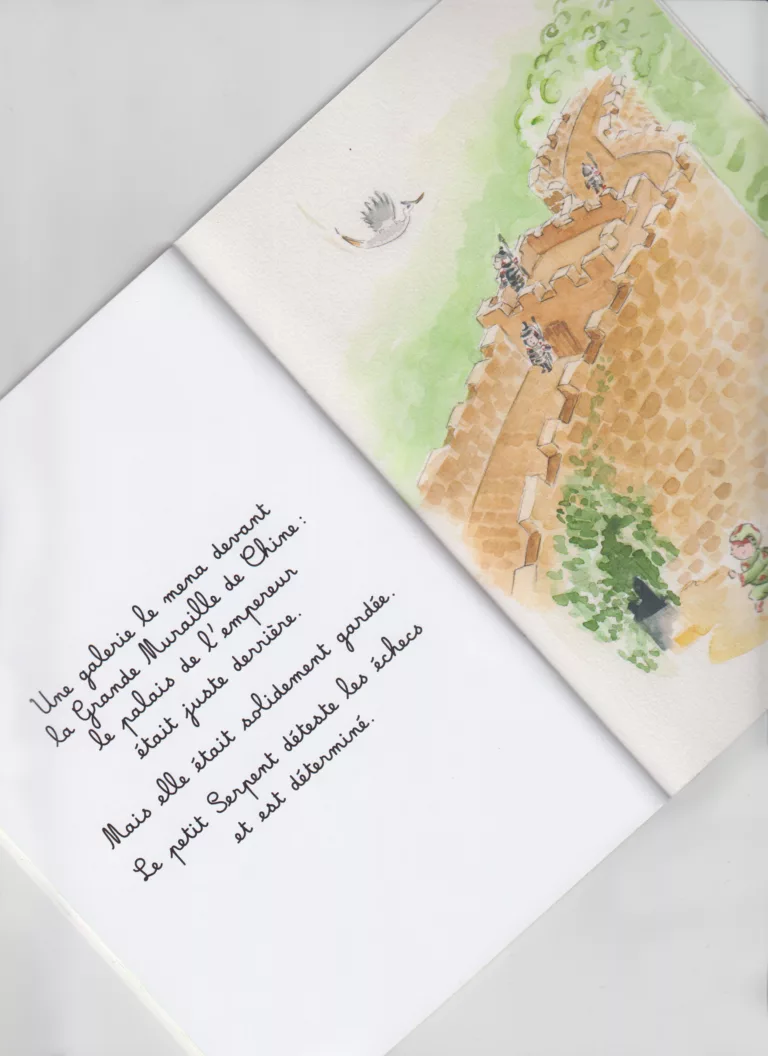 Une galerie le mena devant
la Grande Muraille de Chine :
le palais de l'empereur
était juste derrière.
Mais elle était solidement gardée.
Le petit Serpent déteste les échecs
et est déterminé.